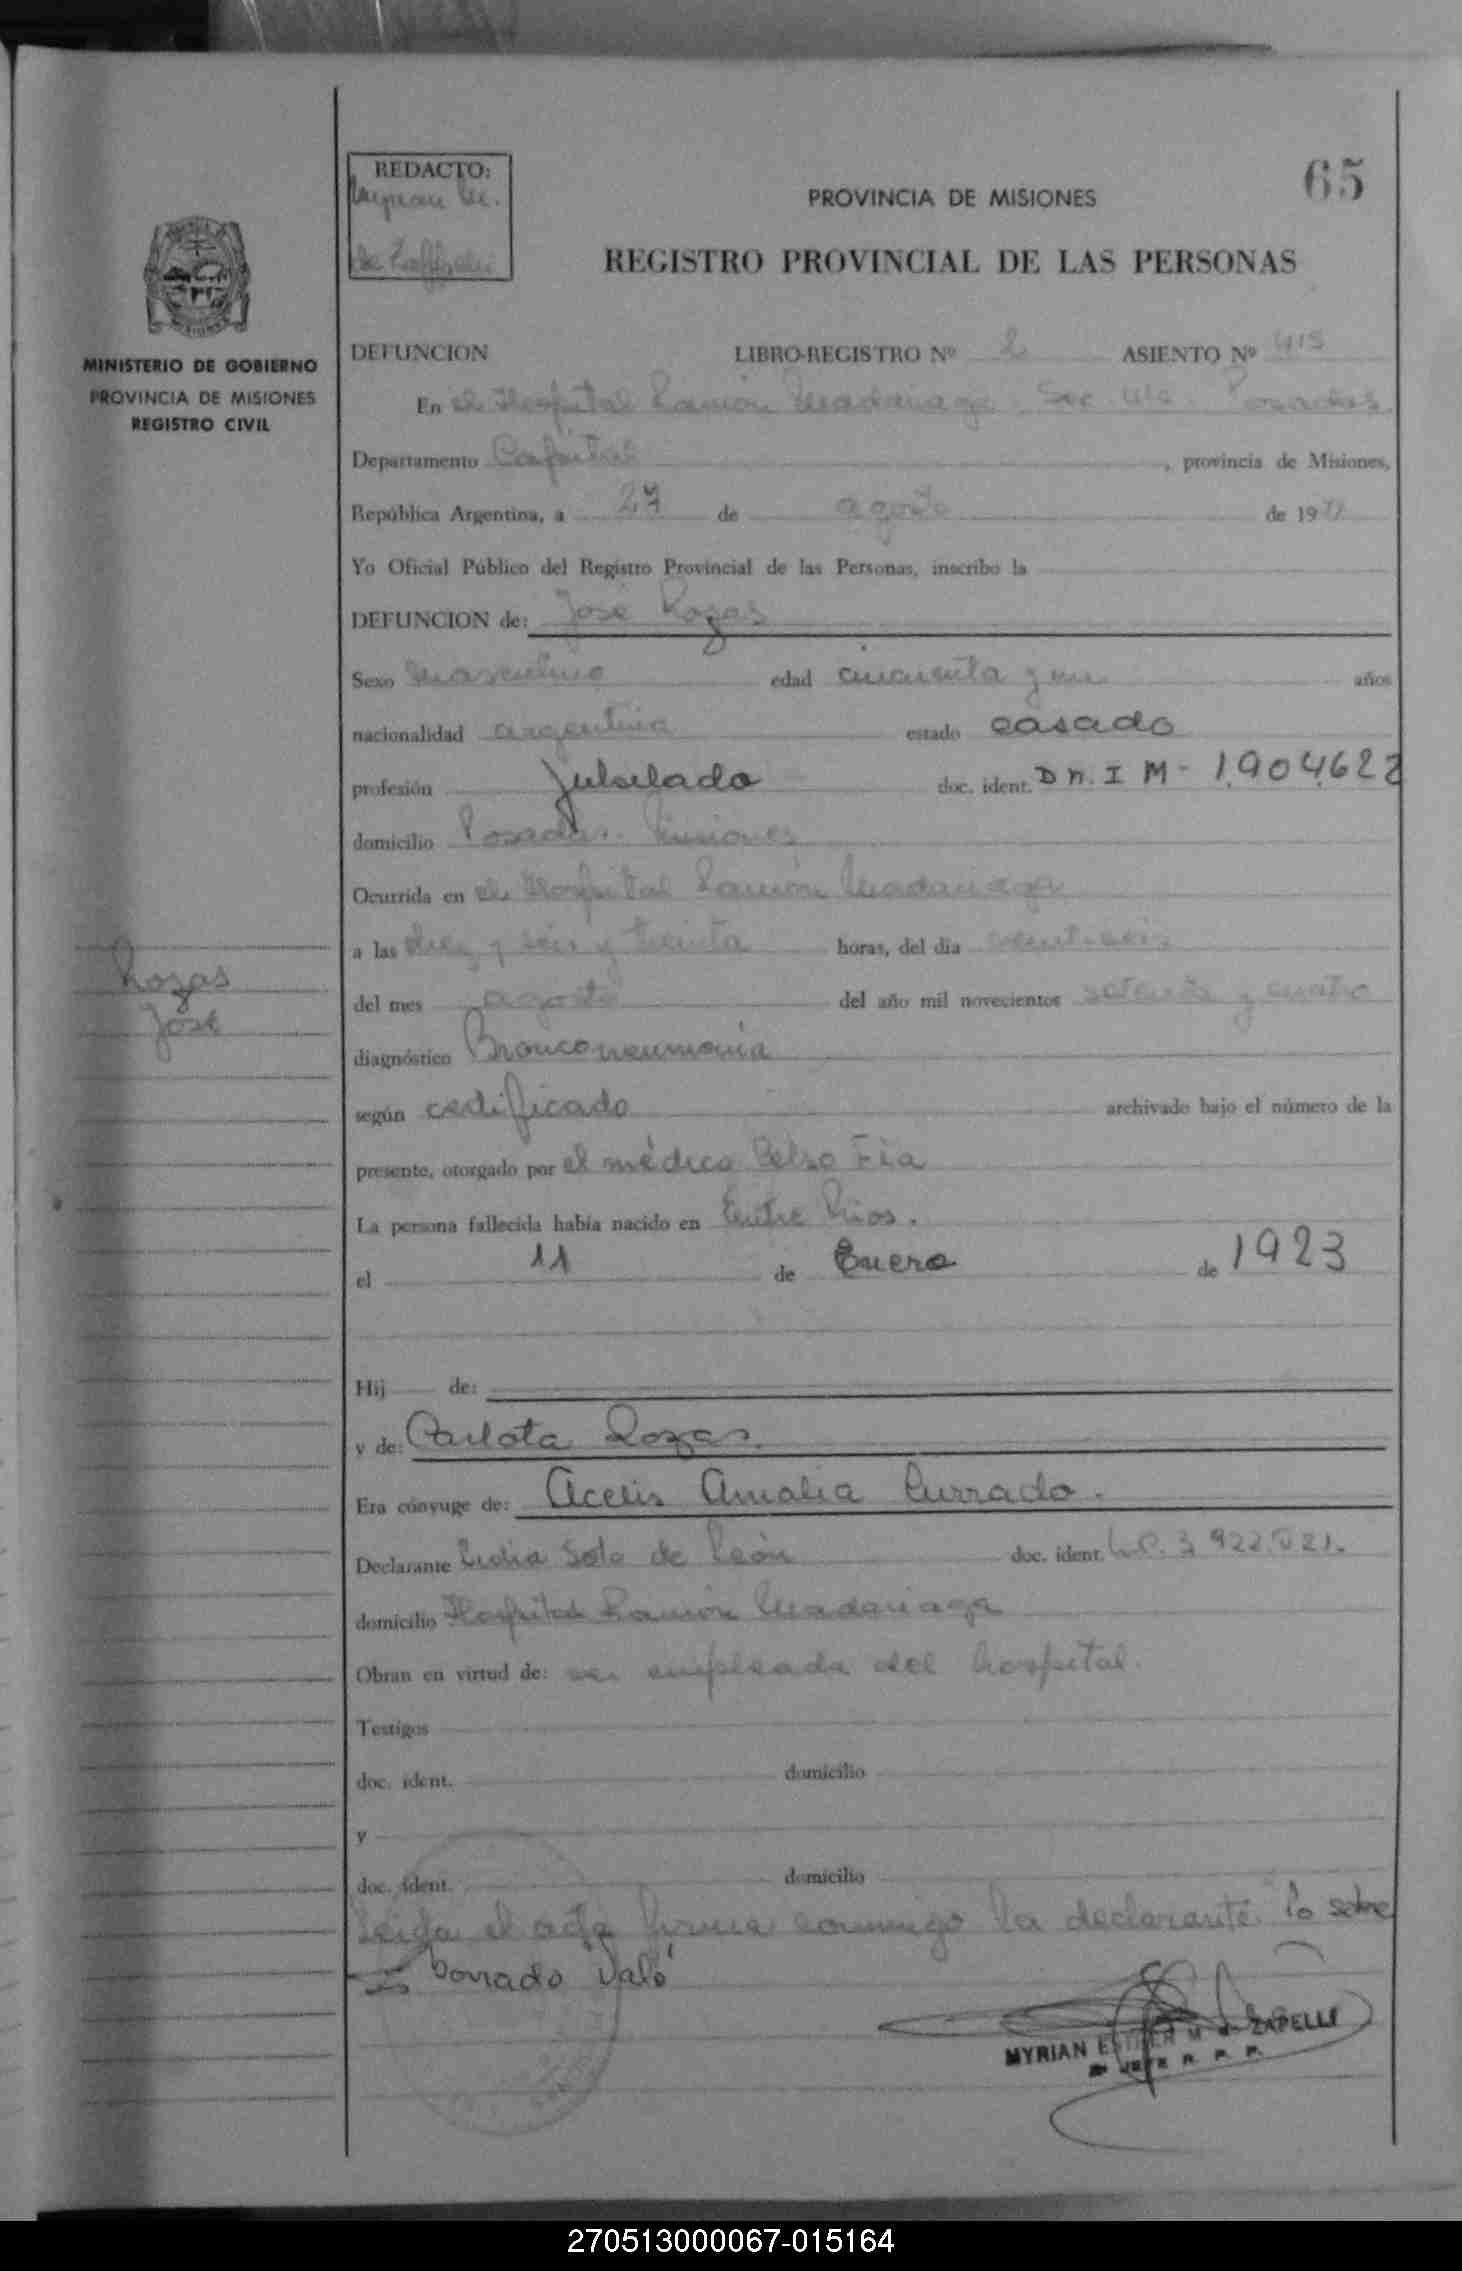 65
REDACTO:
PROVINCIA DE MISIONES
REGISTRO PROVINCIAL DE LAS PERSONAS
MINISTERIO DE GOBIERNO
PROVINCIA DE MISIONES
REGISTRO CIVIL
DEFUNCION LIBRO-REGISTRO Nº 2 ASIENTO Nº 415
En el Hospital Ramón Madariaga Sec. Posadas
Departamento Capital, provincia de Misiones,
República Argentina, a 27 de agosto de 19
Yo Oficial Público del Registro Provincial de las Personas, inscribo la
DEFUNCION de: José Rozas
Sexo masculino edad cincuenta y un años
nacionalidad argentina estado casado
profesión jubilado doc. ident. D n. I M - 1.904.628
domicilio Posadas. Misiones
Ocurrida en el Hospital Ramón Madariaga
a las diez y seis y treinta horas, del día veintiseis
del mes agosto del año mil novecientos setenta y cuatro
Rozas
José
diagnóstico Bronconeumonia
según certificado archivado bajo el número de la
presente, otorgado por el médico Celso Fia
La persona fallecida había nacido en Entre Rios.
el 11 de Enero de 1923
Hij de:
y de: Carlota Rozas.
Era cónyuge de: Acelis Amalia Currado.
Declarante Lidia Soto de León doc. ident. L.C. 3.922.021.
domicilio Hospital Ramón Madariaga
Obran en virtud de: ser empleada del hospital.
Testigos
doc. ident. domicilio
y
doc. ident. domicilio
Leida el acta firma conmigo la declarante. lo sobre
borrado Vale
MYRIAN ESTHER M. de ZAPELLI
R. P. P.
270513000067-015164